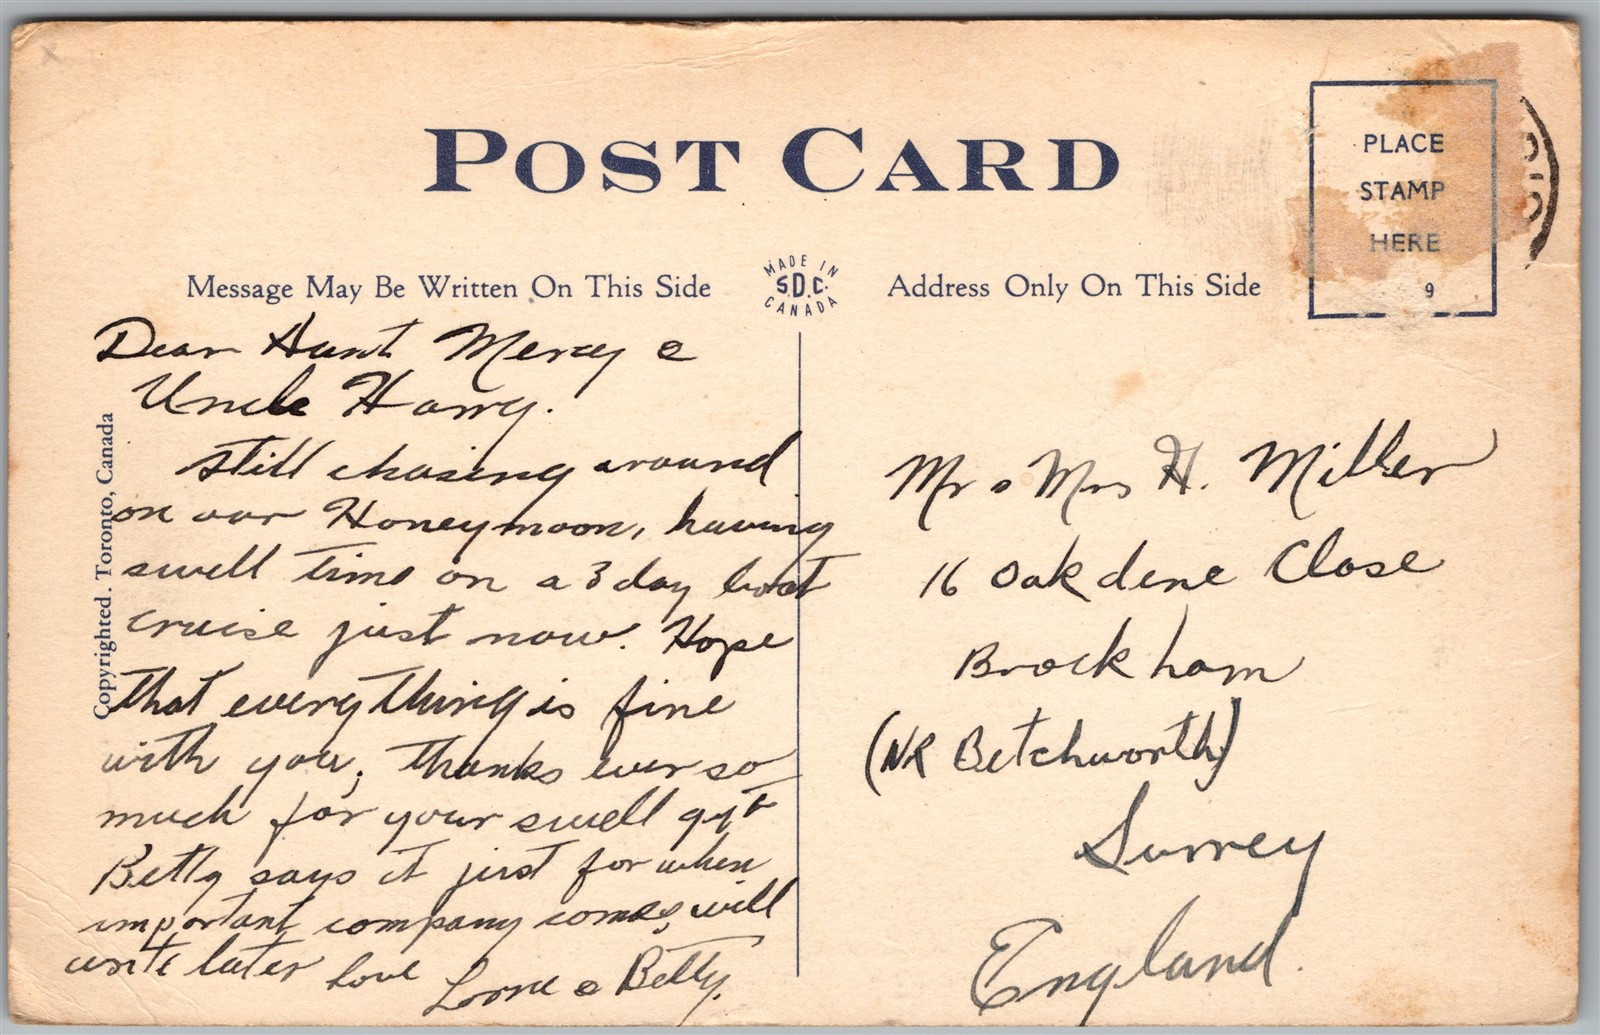 POST CARD
PLACE
STAMP
HERE
9
Message May Be Written On This Side
MADE IN
S.D.C.
CANADA
Address Only On This Side
Copyrighted. Toronto, Canada
Dear Aunt Mercy &
Uncle Harry.
Still chasing around
on our Honeymoon, having
swell time on a 3 day boat
cruise just now. Hope
that everything is fine
with you, thanks ever so
much for your swell gift
Betty says it just for when
important company comes, will
write later love Lorne & Betty.
Mr & Mrs H. Miller
16 Oakdene Close
Brockham
(NR Betchworth)
Surrey
England.